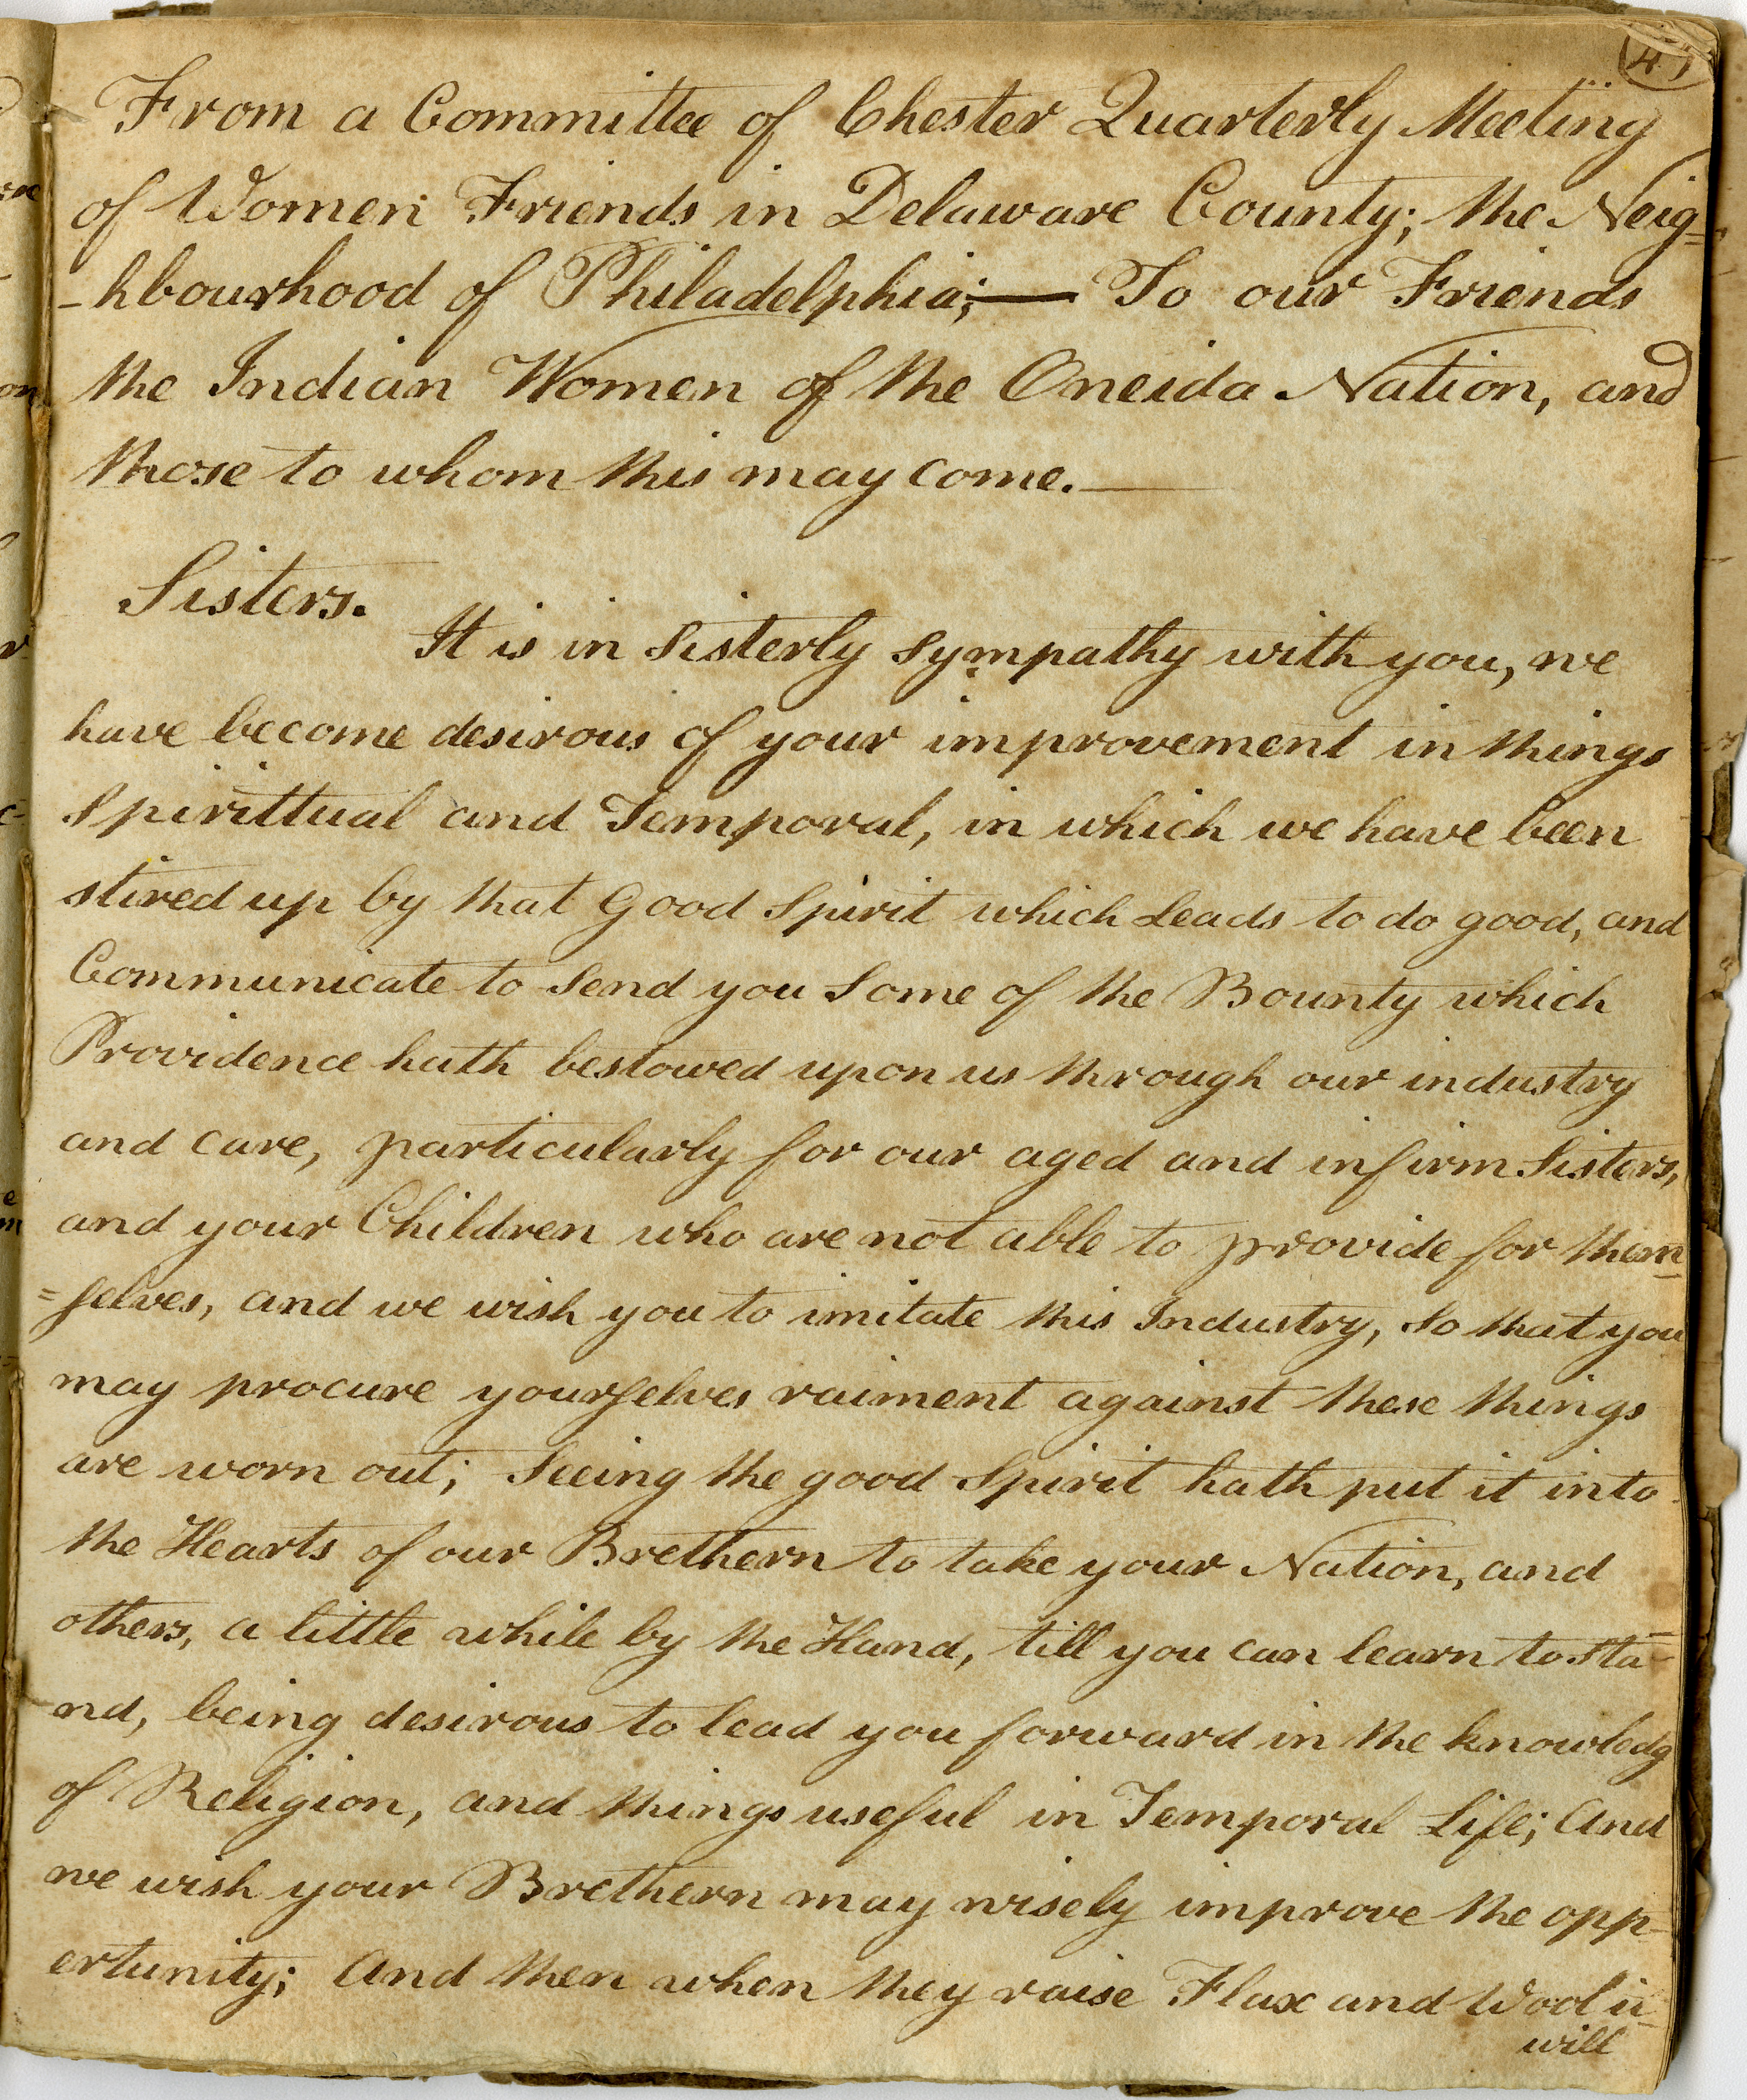 From a Committee of Chester Quarterly Meeting
of Women Friends in Delaware County; the Neig=
-hbourhood of Philadelphia;— To our Friends
the Indian Women of the Oneida Nation, and
those to whom this may come.—
Sisters.
It is in Sisterly Sympathy with you, we
have become desirous of your improvement in things
Spirittual and Temporal, in which we have been
stired up by that Good Spirit which Leads to do good, and
Communicate to Send you Some of the Bounty which
Providence hath bestowed upon us through our industry
and care, particularly for our aged and infirm Sisters,
and your Children who are not able to provide for them=
=selves, and we wish you to imitate this Industry, So that you
may procure yourselves raiment against these things
are worn out; Seeing the good Spirit hath put it into
the Hearts of our Brethern to take your Nation, and
others, a little while by the Hand, till you can learn to Sta=
-nd, being desirous to lead you forward in the knowledg
of Religion, and things useful in Temporal Life; And
we wish your Brethern may wisely improve the opp-
ertunity; And then when they raise Flax and Wool
will